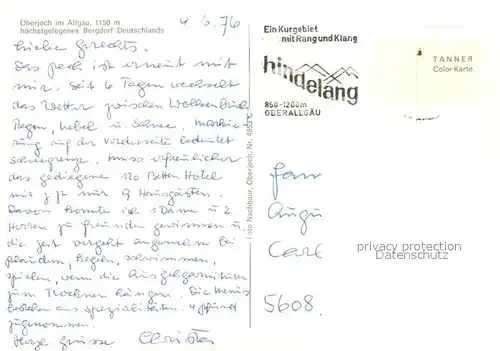 Oberjoch im Allgäu, 1150 m
höchstgelegenes Bergdorf Deutschlands
4.6.76
Liebe Gerechts.
Das Pech ist erneut mit
mir. Seit 6 Tagen wechselt
das Wetter zwischen Wolkenbruch
Regen, Nebel u. Schnee. Markie-
rung auf der Vorderseite bedeutet
Schneegrenze. Umso erfreulicher
das gediegene 120 Betten Hotel
mit z Zt nur 9 Hausgästen.
Davon konnte ich 1 Dame u 2
Herren zu Freunden gewinnen u
die Zeit vergeht angenehm bei
plaudern, kegeln, schwimmen,
spielen, wenn die Ausgehgarnituren
zum Trocknen hängen. Die Menus
bestehen aus Spezialitäten. 4 Pfund
zugenommen.
Herzl. Grüsse Christa
Foto Nachbaur, Oberjoch, Nr. 4953 C
Ein Kurgebiet
mit Rang und Klang
hindelang
850-1200m
OBERALLGÄU
TANNER
Color Karte
Fam
Carl
5608
privacy protection
Datenschutz